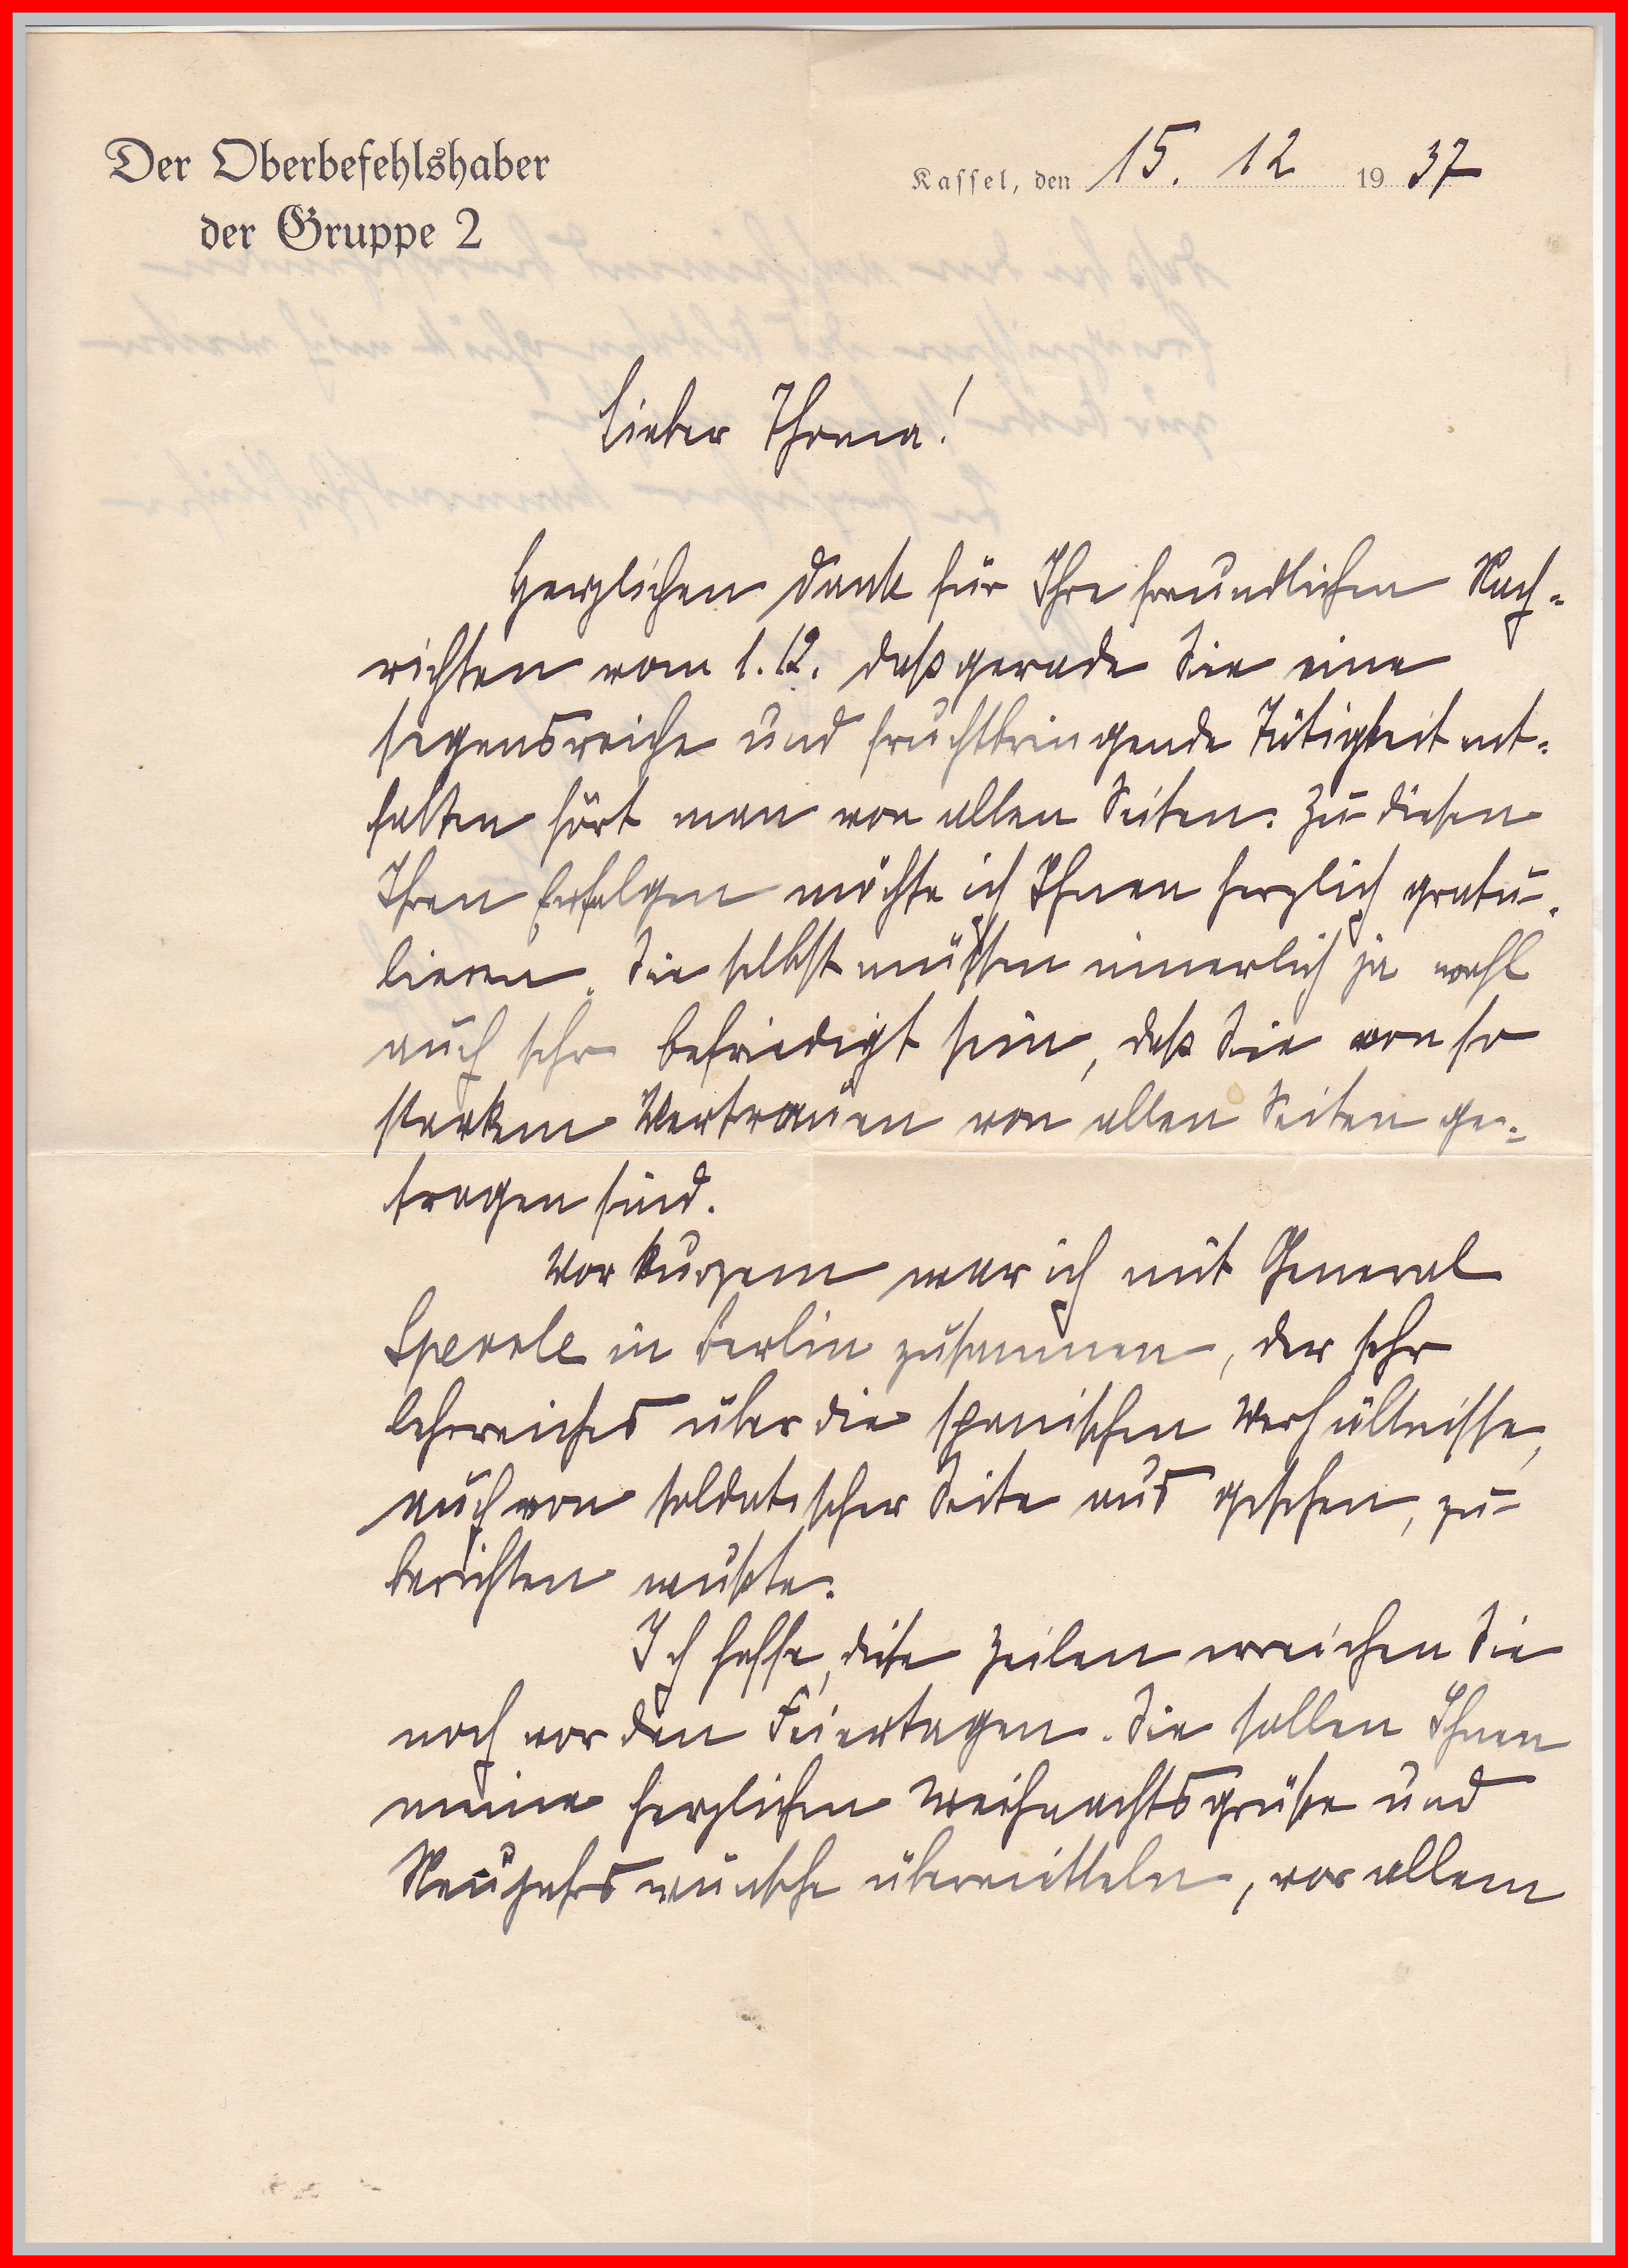 Der Oberbefehlshaber
der Gruppe 2
Kassel, den 15. 12 1937
Lieber Thoma!
Herzlichen Dank für Ihre freundlichen Nach-
richten vom 1.12. daß gerade Sie eine
segensreiche und fruchtbringende Tätigkeit ent-
falten hört man von allen Seiten. Zu diesen
Ihren Erfolgen möchte ich Ihnen herzlich gratu-
lieren. Sie selbst müssen innerlich ja wohl
auch sehr befriedigt sein, daß Sie von so
starkem Vertrauen von allen Seiten ge-
tragen sind.
Vor kurzem war ich mit General
Sperrle in Berlin zusammen, der sehr
lehrreiches über die spanischen Verhältnisse,
auch von soldatischer Seite aus gesehen, zu
berichten wußte.
Ich hoffe, diese Zeilen erreichen Sie
noch vor den Feiertagen. Sie sollen Ihnen
meine herzlichen Weihnachtsgrüße und
Neujahrswünsche übermitteln, vor allem